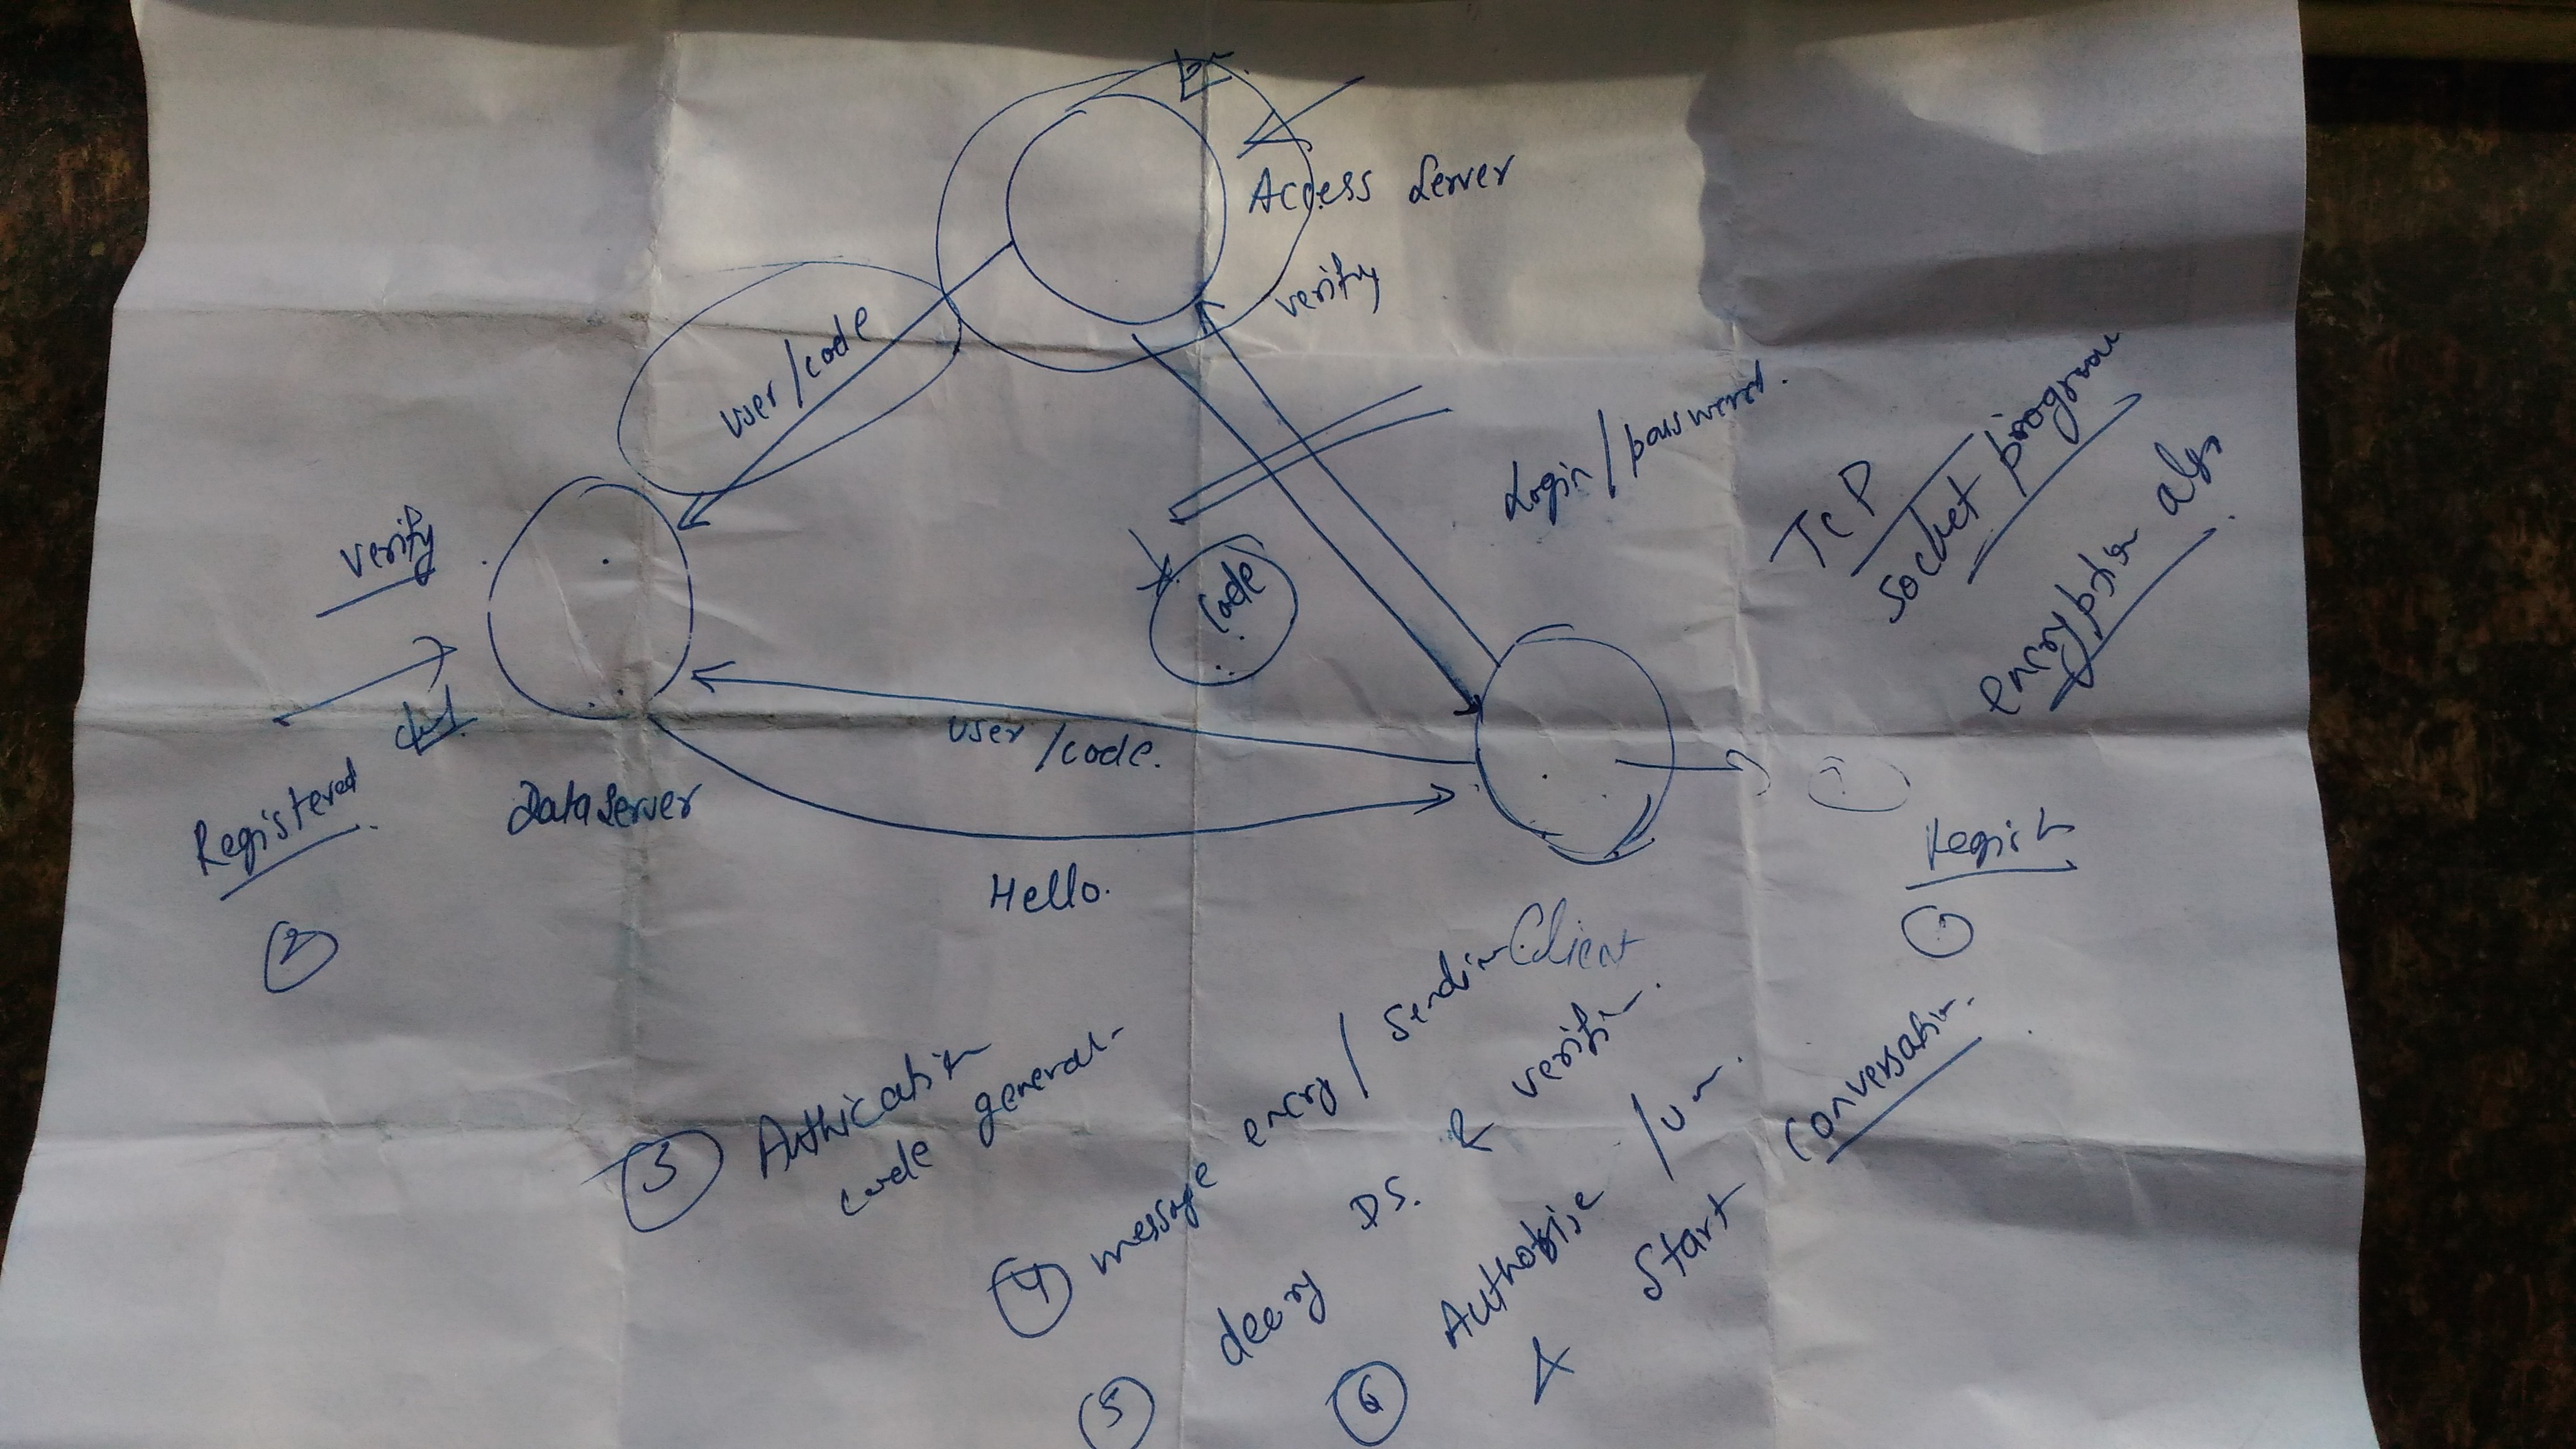 Access Server
verify
user/code
Login/password.
TCP
socket program
encryption algo
verify
Code
user/code.
Registered
DataServer
Hello.
2
1
Client
3 Authication
code generat
4 message encry/sendin
5 decry DS. & verifi
6 Authorise /un
& Start
Conversation